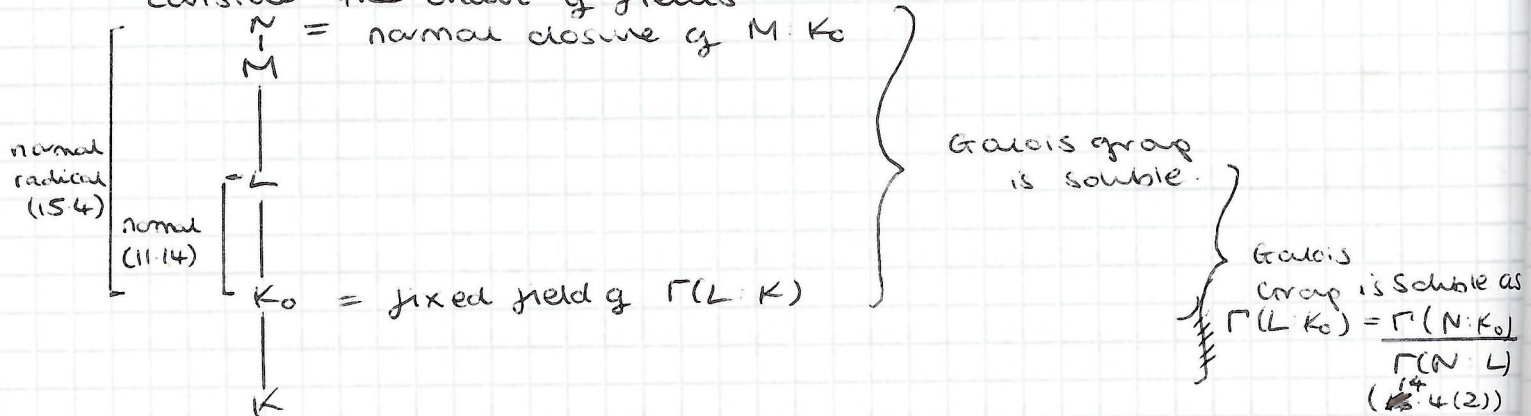 consider the chain of fields
N = normal closure of M:K₀
M
normal
radical
(15.4)
L
normal
(11.14)
K₀ = fixed field of Γ(L:K)
K
Galois group
is soluble.
Galois
Group is soluble as
Γ(L:K₀) = Γ(N:K₀)
Γ(N:L)
(14.4(2))